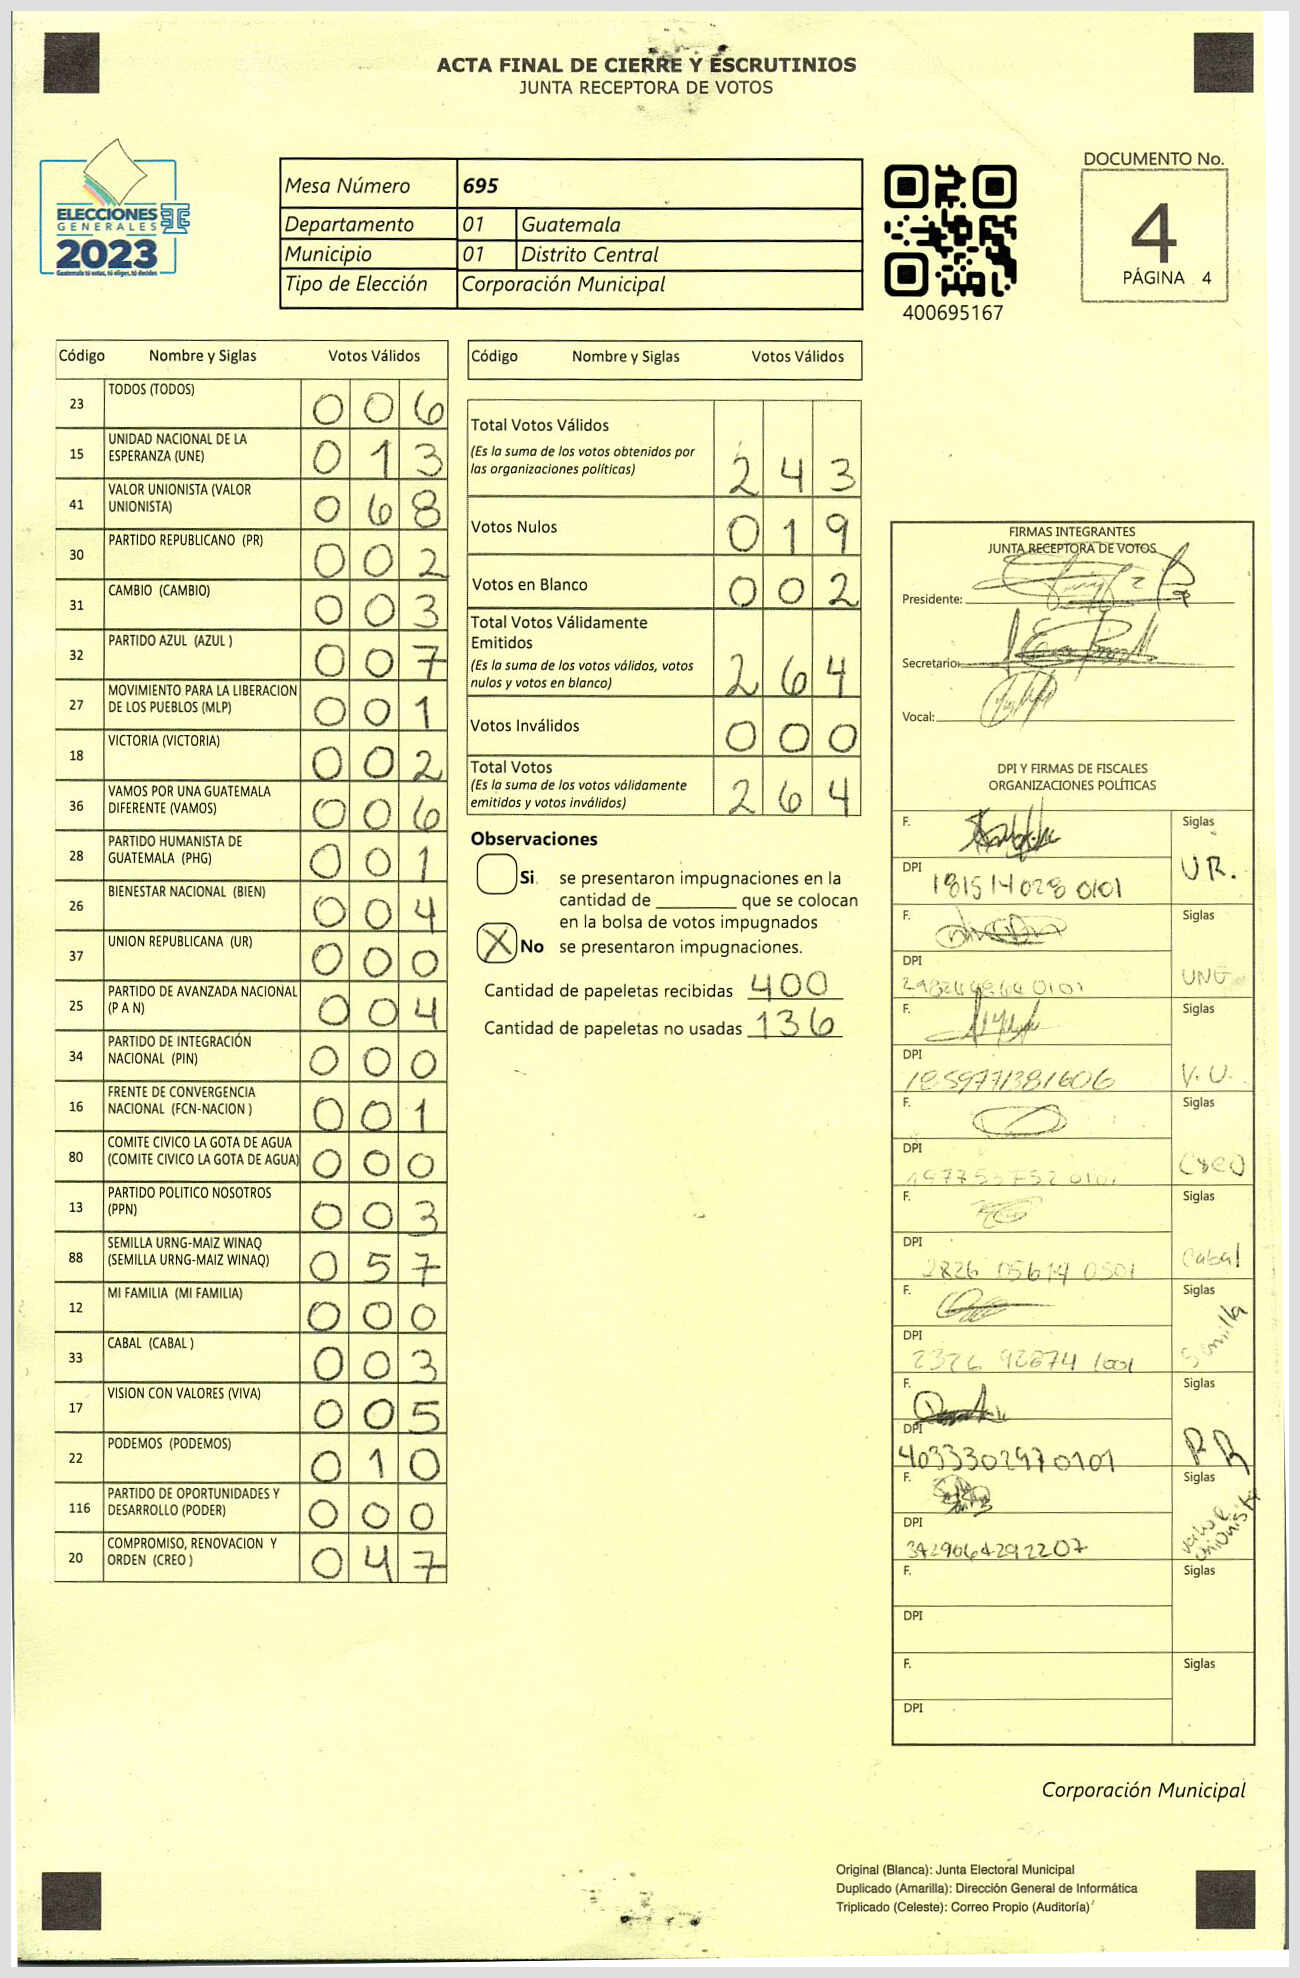 ACTA FINAL DE CIERRE Y ESCRUTINIOS
JUNTA RECEPTORA DE VOTOS
ELECCIONES
GENERALES
2023
Guatemala tú votas, tú eliges, tú decides
Mesa Número 695
Departamento 01 Guatemala
Municipio 01 Distrito Central
Tipo de Elección Corporación Municipal
400695167
DOCUMENTO No.
4
PÁGINA 4
Código Nombre y Siglas Votos Válidos
23 TODOS (TODOS) 0 0 6
15 UNIDAD NACIONAL DE LA
ESPERANZA (UNE) 0 1 3
41 VALOR UNIONISTA (VALOR
UNIONISTA) 0 6 8
30 PARTIDO REPUBLICANO (PR) 0 0 2
31 CAMBIO (CAMBIO) 0 0 3
32 PARTIDO AZUL (AZUL ) 0 0 7
27 MOVIMIENTO PARA LA LIBERACION
DE LOS PUEBLOS (MLP) 0 0 1
18 VICTORIA (VICTORIA) 0 0 2
36 VAMOS POR UNA GUATEMALA
DIFERENTE (VAMOS) 0 0 6
28 PARTIDO HUMANISTA DE
GUATEMALA (PHG) 0 0 1
26 BIENESTAR NACIONAL (BIEN) 0 0 4
37 UNION REPUBLICANA (UR) 0 0 0
25 PARTIDO DE AVANZADA NACIONAL
(P A N) 0 0 4
34 PARTIDO DE INTEGRACIÓN
NACIONAL (PIN) 0 0 0
16 FRENTE DE CONVERGENCIA
NACIONAL (FCN-NACION ) 0 0 1
80 COMITE CIVICO LA GOTA DE AGUA
(COMITE CIVICO LA GOTA DE AGUA) 0 0 0
13 PARTIDO POLITICO NOSOTROS
(PPN) 0 0 3
88 SEMILLA URNG-MAIZ WINAQ
(SEMILLA URNG-MAIZ WINAQ) 0 5 7
12 MI FAMILIA (MI FAMILIA) 0 0 0
33 CABAL (CABAL ) 0 0 3
17 VISION CON VALORES (VIVA) 0 0 5
22 PODEMOS (PODEMOS) 0 1 0
116 PARTIDO DE OPORTUNIDADES Y
DESARROLLO (PODER) 0 0 0
20 COMPROMISO, RENOVACION Y
ORDEN (CREO ) 0 4 7
Código Nombre y Siglas Votos Válidos
Total Votos Válidos
(Es la suma de los votos obtenidos por
las organizaciones políticas) 2 4 3
Votos Nulos 0 1 9
Votos en Blanco 0 0 2
Total Votos Válidamente
Emitidos
(Es la suma de los votos válidos, votos
nulos y votos en blanco) 2 6 4
Votos Inválidos 0 0 0
Total Votos
(Es la suma de los votos válidamente
emitidos y votos inválidos) 2 6 4
Observaciones
Si se presentaron impugnaciones en la
cantidad de ________ que se colocan
en la bolsa de votos impugnados
X No se presentaron impugnaciones.
Cantidad de papeletas recibidas 400
Cantidad de papeletas no usadas 136
FIRMAS INTEGRANTES
JUNTA RECEPTORA DE VOTOS
Presidente:
Secretario:
Vocal:
DPI Y FIRMAS DE FISCALES
ORGANIZACIONES POLÍTICAS
F. Siglas
DPI 181514028 0101 UR.
F. Siglas
DPI UNE
F. Siglas
DPI 1859771381606 V.U.
F. Siglas
DPI Creo
F. Siglas
DPI 2826 05614 0501 Cabal
F. Siglas
DPI 2326 92874 1001 Semilla
F. Siglas
DPI 4033302970101 PR
F. Siglas
DPI 3429064292207 unionista
F. Siglas
DPI
F. Siglas
DPI
Corporación Municipal
Original (Blanca): Junta Electoral Municipal
Duplicado (Amarilla): Dirección General de Informática
Triplicado (Celeste): Correo Propio (Auditoría)